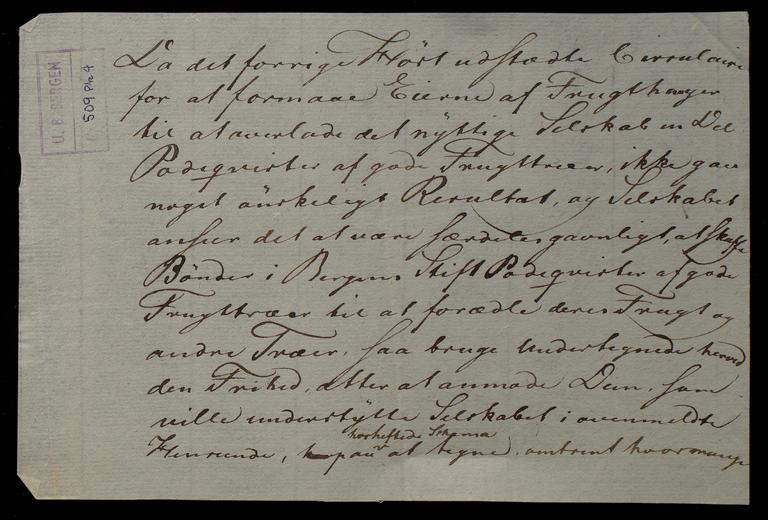 U. B. BERGEN
509 Ph 4
Da det forrige Höst udstædte Circulaire
for at formaae Eierne af Frugthauger
til at overlade det nyttige Selskab en Deel
Podeqvister af gode Frugttræer, ikke gav
noget önskeligt Resultat, og Selskabet
anseer det at være særdeles gavnligt, at skaffe
Bönder i Bergens Stift Podeqvister af gode
Frugttræer til at forædle deres Frugt og
andre Træer, saa bruge Undertegnede herved
den Frihed, atter at anmode Dem, som
ville understytte Selskabet i ovenmeldte
hosheftede Schema
Henseende, paa at tegne, omtrent hvormange